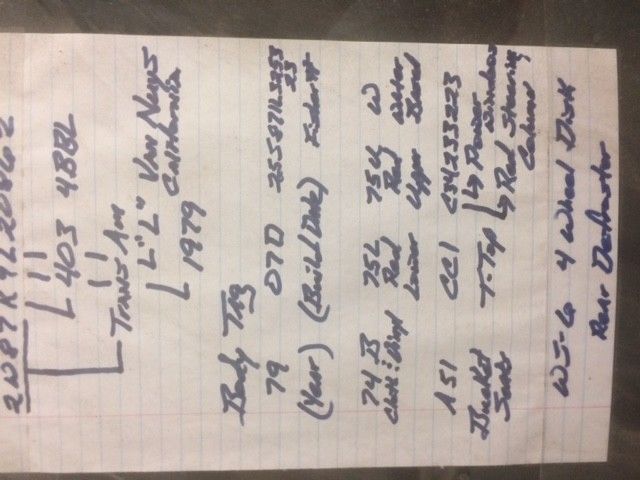 2W87K9L208062
403 4BBL
TRANS AM
"L" Van Nuys
California
1979
Body Tag
79 07D
(Year) (Build Date) Fisher #
74 B 75L 75U W
Cloth : Vinyl Red Red Water
Lower Upper Based
A51 CC1 C34233223
Bucket T-Top Power Windows
Seats Red Steering
Column
WS-6 4 Wheel Disk
Rear Defroster